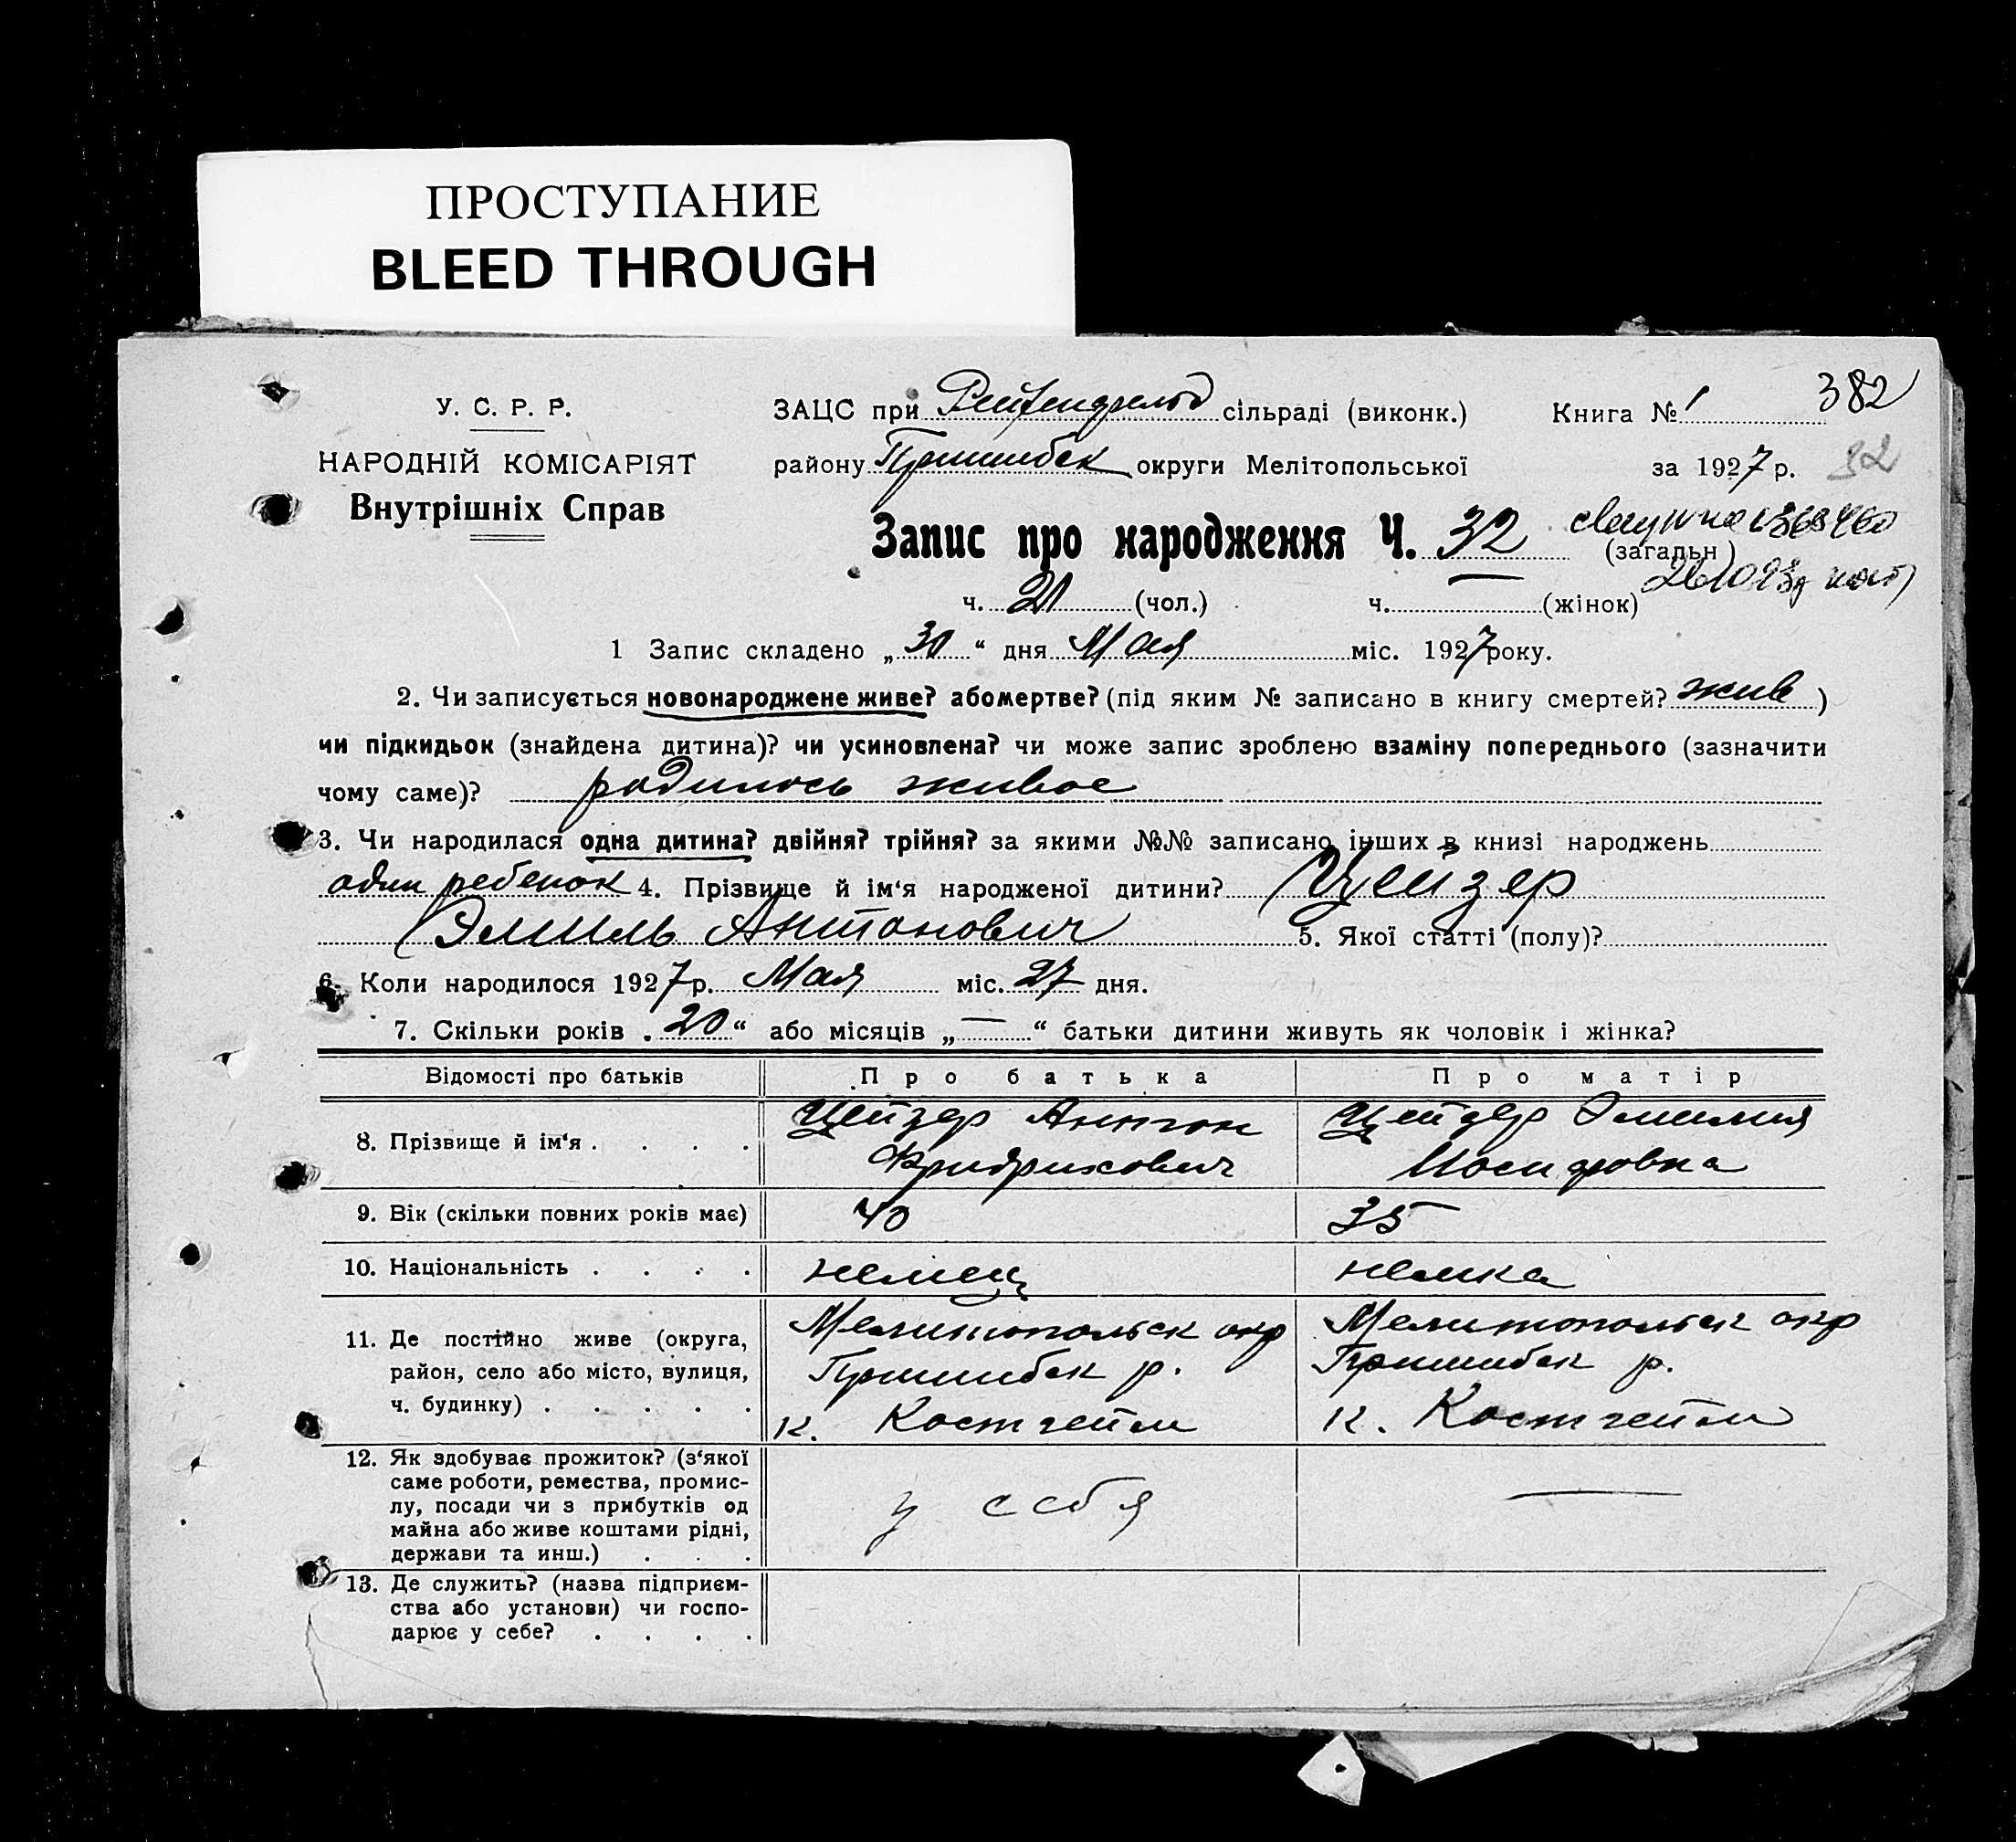 ПРОСТУПАНИЕ
BLEED THROUGH
382
У. С. Р. Р.
ЗАЦС при Рейхенфельд сільраді (виконк.) Книга № 1
НАРОДНІЙ КОМІСАРІЯТ
района Пришибск округи Мелітопольської за 1927 р. 32
Внутрішніх Справ
Запис про народження Ч. 32 (загальн)
ч. 21 (чол.) ч. — (жінок)
1 Запис складено „30“ дня Мая міс. 1927 року.
2. Чи записується новонароджене живе? або мертве? (під яким № записано в книгу смертей? жив)
чи підкидьок (знайдена дитина)? чи усиновлена? чи може запис зроблено взаміну попереднього (зазначити
чому саме)? родилось живое
3. Чи народилася одна дитина? двійня? трійня? за якими №№ записано інших в книзі народжень
один ребенок 4. Прізвище й ім‘я народженої дитини? Цейзер
Эмиль Антонович 5. Якої статті (полу)?
6. Коли народилося 1927 р. Мая міс. 27 дня.
7. Скільки років „20“ або місяців „—“ батьки дитини живуть як чоловік і жінка?
Відомості про батьків Про батька Про матір
8. Прізвище й ім‘я . . . . Цейзер Антон Фридрихович Цейзер Эмилия Иосифовна
9. Вік (скільки повних років має) 40 35
10. Національність . . . . немец немка
11. Де постійно живе (округа, Мелитопольск окр Мелитопольск окр
район, село або місто, вулиця, Пришибск р. Пришибск р.
ч. будинку) . . . . . к. Костгейм к. Костгейм
12. Як здобуває прожиток? (з‘якої
саме роботи, ремества, промис-
лу, посади чи з прибутків од у себя —
майна або живе коштами рідні,
держави та инш.) . . .
13. Де служить? (назва підприєм-
ства або установи) чи госпо-
дарює у себе? . . . .